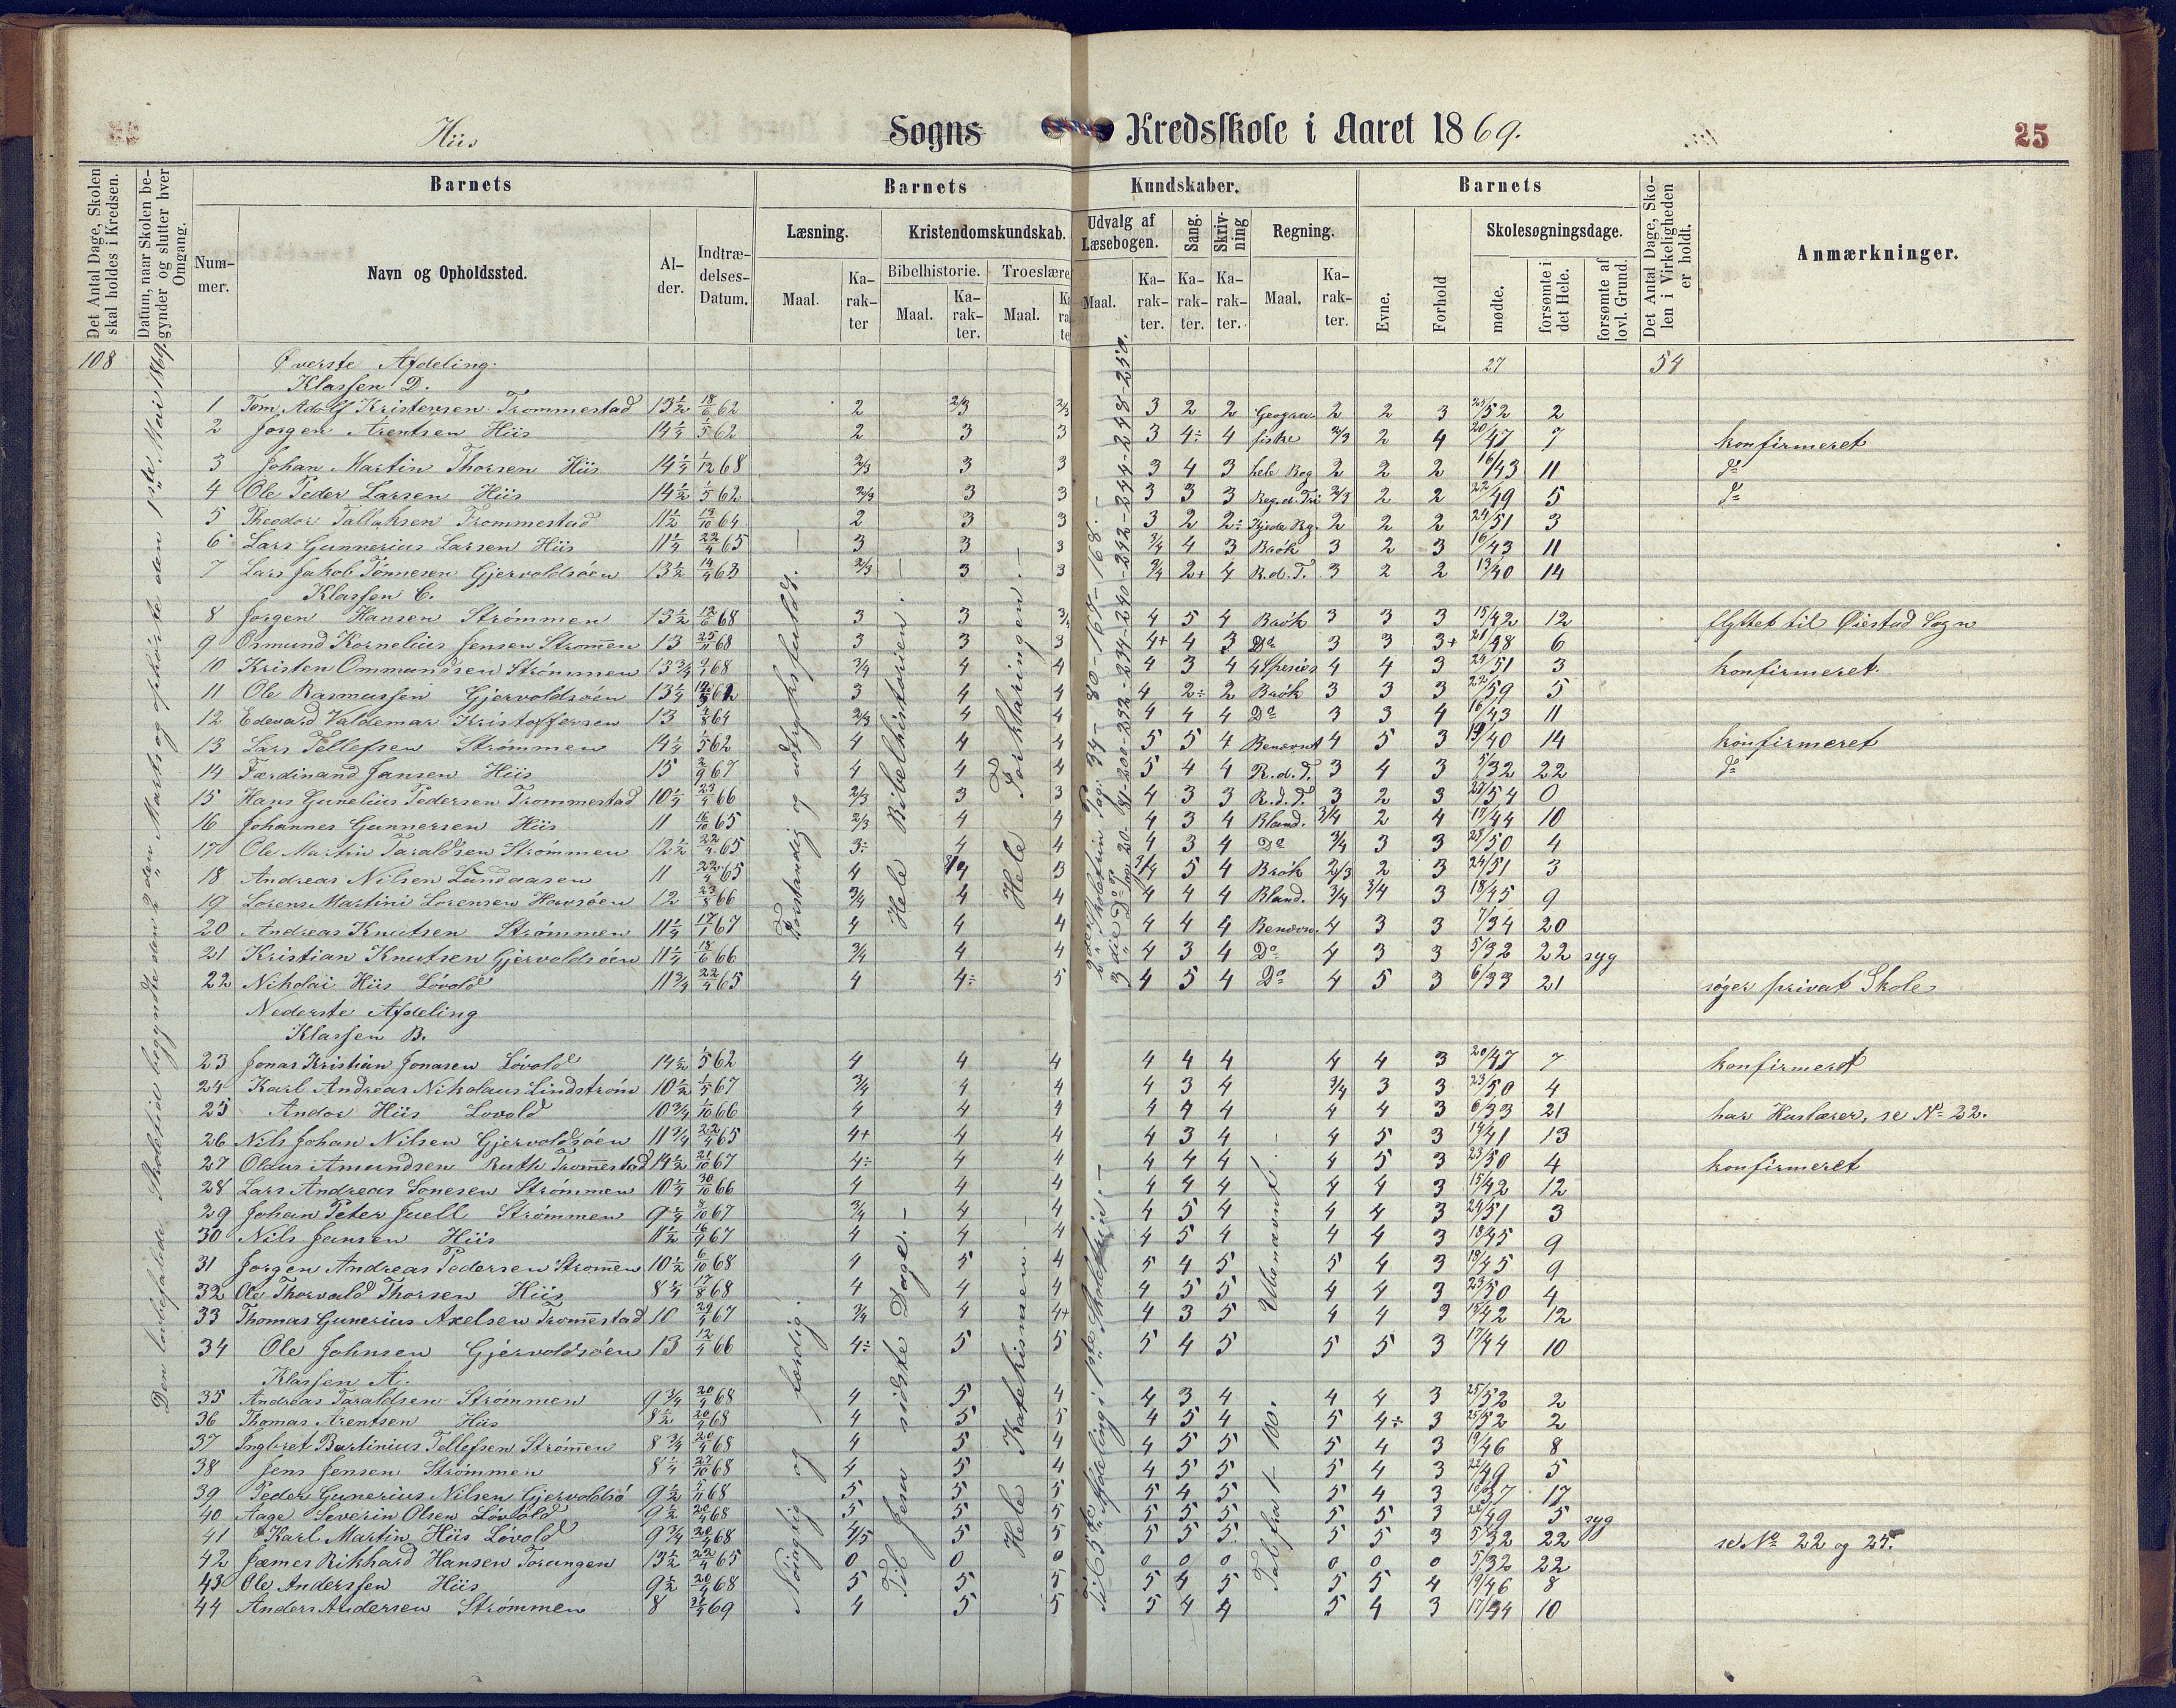 Hiis Sogns Kredsskole i Aaret 1869. 25
Det Antal Dage, Skolen skal holdes i Kredsen.
Datum, naar Skolen begynder og slutter hver Omgang.
Barnets
Nummer.
Navn og Opholdssted.
Alder.
Indtrædelses-Datum.
Barnets Kundskaber.
Læsning.
Maal.
Karakter
Kristendomskundskab.
Bibelhistorie.
Maal.
Karakter.
Troeslære
Maal.
Udvalg af Læsebogen.
Maal.
Karakter.
Sang.
Karakter.
Skrivning
Karakter.
Regning.
Maal.
Karakter.
Barnets
Evne.
Forhold
Skolesøgningsdage.
mødte.
forsømte i det Hele.
forsømte af lovl. Grund.
Det Antal Dage, Skolen i Virkeligheden er holdt.
Anmærkninger.
108 Øverste Afdeling. 27 54
Klassen D.
1 Tom Adolf Kristensen Trommestad 13½ 18/6 62 2 2/3 2/3 3 2 2 2 2 3 25/52 2
2 Jørgen Arentsen Hiis 14¼ 1/5 62 2 3 3 3 4÷ 4 2/3 2 4 20/47 7 konfirmeret
3 Johan Martin Thorsen Hiis 14¼ 1/12 68 2/3 3 3 3 4 3 hele Bog 2 2 2 16/43 11 do
4 Ole Peder Larsen Hiis 14½ 1/5 62 2/3 3 3 3 3 3 Reg.d.Tri 2/3 2 2 22/49 5 do
5 Theodor Tallaksen Trommestad 11½ 19/10 64 2 3 3 3 2 2÷ 2 2 2 24/51 3
6 Lars Gunnerius Larsen Hiis 11¼ 22/4 65 3 3 3 3/4 4 3 Brøk 3 2 3 16/43 11
7 Lars Jakob Tønnesen Gjervoldsøen 13½ 14/4 63 2/3 3 3 3/4 2+ 4 R.d.T. 3 2 2 13/40 14
Klassen C.
8 Jørgen Hansen Strømmen 13½ 12/6 68 3 3 3/4 4 5 4 Brøk 3 3 3 15/42 12 flyttet til Øiestad Sogn
9 Osmund Kornelius Jensen Strømen 13 25/11 68 3 3 3 4+ 4 3 Do 3 3 3+ 21/48 6
10 Kristen Ommundsen Strømmen 13¾ 9/1 68 3/4 4 4 4 3 4 4 Spesies 4 4 3 24/51 3 konfirmeret.
11 Ole Rasmussen Gjervoldsøen 13¼ 3 4 4 4 2÷ 2 Brøk 3 3 3 5
12 Edevard Valdemar Kristoffersen 13 2/3 4 4 4 4 4 Do 3 3 4 16/43 11
13 Lars Tellefsen Strømmen 14¼ 1/5 62 4 4 4 5 5 4 Benævnt 4 5 3 13/40 14 konfirmeret
14 Færdinand Jansen Hiis 15 2/9 67 4 4 4 5 4 4 R.d.T. 3 4 3 5/32 22 do
15 Hans Gunelius Pedersen Trommestad 10¼ 23/4 66 2/3 3 3 4 3 3 R.d.T. 3 2 3 27/54 0
16 Johannes Gunnersen Hiis 11 16/10 65 2/3 4 4 4 3 4 Bland. 3/4 2 4 17/44 10
17 Ole Martin Taraldsen Strømmen 12½ 22/4 65 3÷ 4 4 4 3 4 Do 3/4 3 3 23/50 4
18 Andreas Nilsen Lundaasen 11 22/4 65 4 3/4 3 3/4 5 4 Brøk 2/3 2 3 24/51 3
19 Lorens Martini Lorensen Havsøen 12 23/8 66 3/4 4 4 4 4 4 Bland. 3/4 3/4 3 18/45 9
20 Andreas Knutsen Strømmen 11¼ 17/1 67 4 4 4 4 4 4 Benævn. 4 3 3 7/34 20
21 Kristian Knutsen Gjervoldsøen 11¼ 18/6 66 3/4 4 4 4 3 4 Do 4 3 3 5/32 22 syg
22 Nikolai Hiis Løvold 11¾ 22/4 65 4 4÷ 5 4 5 4 Do 4 5 3 6/33 21 søger privat Skole
Nederste Afdeling
Klassen B.
23 Jonas Kristian Jonasen Løvold 14½ 1/5 62 4 4 4 4 4 4 4 4 3 20/47 7 konfirmeret
24 Karl Andreas Nikolaus Lindstrøm 10½ 1/5 67 3/4 4 4 4 3 4 3/4 3 3 23/50 4
25 Andor Hiis Løvold 10¾ 1/10 66 4 4 4 4 4 4 4 4 3 6/33 21 har Huslærer, se No 22.
26 Nils Johan Nilsen Gjervoldsøen 11¾ 22/4 65 4+ 4 4 4 3 4 4 5 3 14/41 13
27 Olaus Amundsen Ruth Tromestad 14½ 21/10 67 4÷ 4 4 4 4 4 4 5 3 23/50 4 konfirmeret
28 Lars Andreas Sonesen Strømmen 10¼ 30/10 66 4 4 4 4 4 4 4 4 3 15/42 12
29 Johan Peter Juell Strømmen 9¼ 3/4 4 4 4 5 4 4 4 3 24/51 3
30 Nils Jansen Hiis 16/9 67 4 4 4 4 5 4 4 4 3 18/45 9
31 Jørgen Andreas Pedersen Strømen 10½ 6/10 68 4 5 4 5 4 5 5 4 3 18/45 9
32 Ole Thorvald Thorsen Hiis 8¼ 17/8 68 4 4 4 4 5 5 4 4 3 23/50 4
33 Thomas Gunerius Axelsen Tromestad 10 29/4 67 3/4 4 4+ 4 3 5 4 4 3 15/42 12
34 Ole Johnsen Gjervoldsøen 13 12/4 66 4÷ 5 5 5 4 5 5 5 3 17/44 10
Klassen A.
35 Andreas Taraldsen Strømmen 9¾ 20/4 68 4 5 4 4 3 4 4 4 3 25/52 2
36 Thomas Arentsen Hiis 8½ 20/4 68 4 5 5 4 5 4 5 4÷ 3 25/52 2
37 Ingbret Bertinius Tellefsen Strømen 8¾ 20/4 68 4 5 4 4 5 5 5 4 3 19/46 8
38 Jens Jensen Strømmen 8¼ 27/10 68 4 5 4 4 5 5 5 4 3 22/49 5
39 Peder Gunerius Nilsen Gjervoldsø 9½ 68 5 5 5 5 4 5 5 4 3 10/37 17
40 Aage Severin Olsen Løvold 9½ 20/4 68 5 5 5 5 5 5 5 5 3 22/49 5 syg
41 Karl Martin Hiis Løvold 9¾ 20/4 68 4/5 5 5 5 5 5 5 5 3 5/32 22 se No 22 og 25.
42 Jæmes Rikhard Hansen Torungen 13½ 22/4 65 0 0 0 0 0 0 0 0 0 5/32 22
43 Ole Anderssen Hiis 9½ 20/4 68 5 5 5 5 4 5 5 5 4 19/46 8
44 Anders Andersen Strømmen 8 69 4 5 5 5 4 4 5 4 3 17/44 10
Den lovbefalede Skoletid begyndte den 2den Marts og ophørte den 1ste Mai 1869.
Forstandig og udtryksfuldt.
Hele Bibelhistorien.
Hele Forklaringen.
Nøiagtig og færdig.
Til Jesu sidste Dage.
Hele Katekismen.
Til 5te Afdeling i 1ste Skoletrin.
Ubenævnt.
Tal fra 1-100.